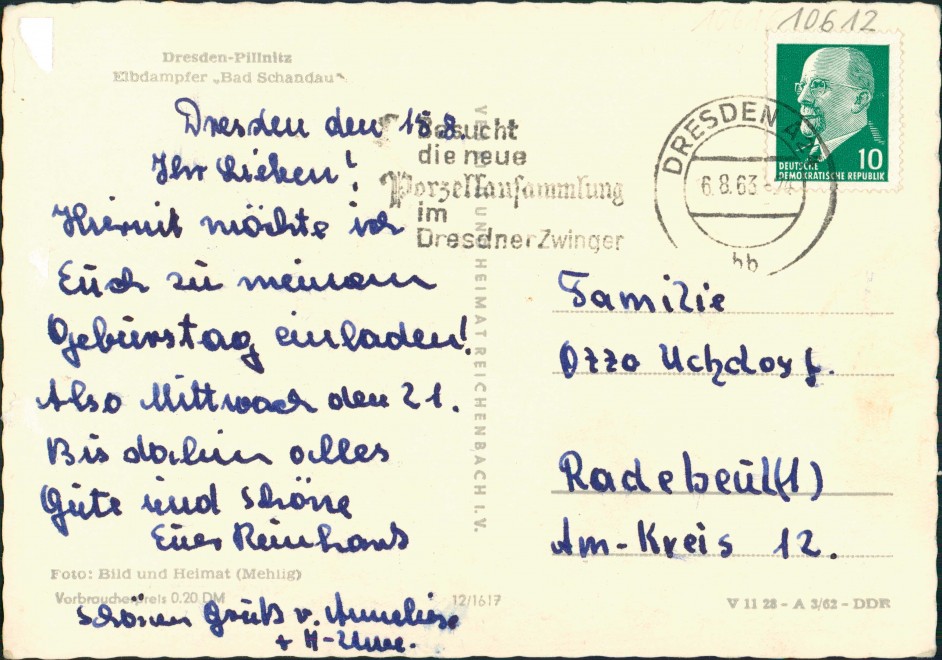 10612
Dresden-Pillnitz
Elbdampfer „Bad Schandau“
Dresden den 18.8.
Ihr Lieben!
Hiermit möchte ich
Euch zu meinem
Geburstag einladen!
Also Mittwoch den 21.
Bis dahin alles
Gute und Schöne
Euer Reinhard
Schönen Gruß v. Anneliese
+ H-Uwe.
Foto: Bild und Heimat (Mehlig)
Verbraucherpreis 0.20 DM
12/1617
UND HEIMAT REICHENBACH I. V.
Besucht
die neue
Porzellansammlung
im
Dresdner Zwinger
DRESDEN A
6.8.63
bb
DEUTSCHE
DEMOKRATISCHE REPUBLIK
10
Familie
Otto
Radebeul (1)
Am-Kreis 12.
V 11 28 - A 3/62 - DDR